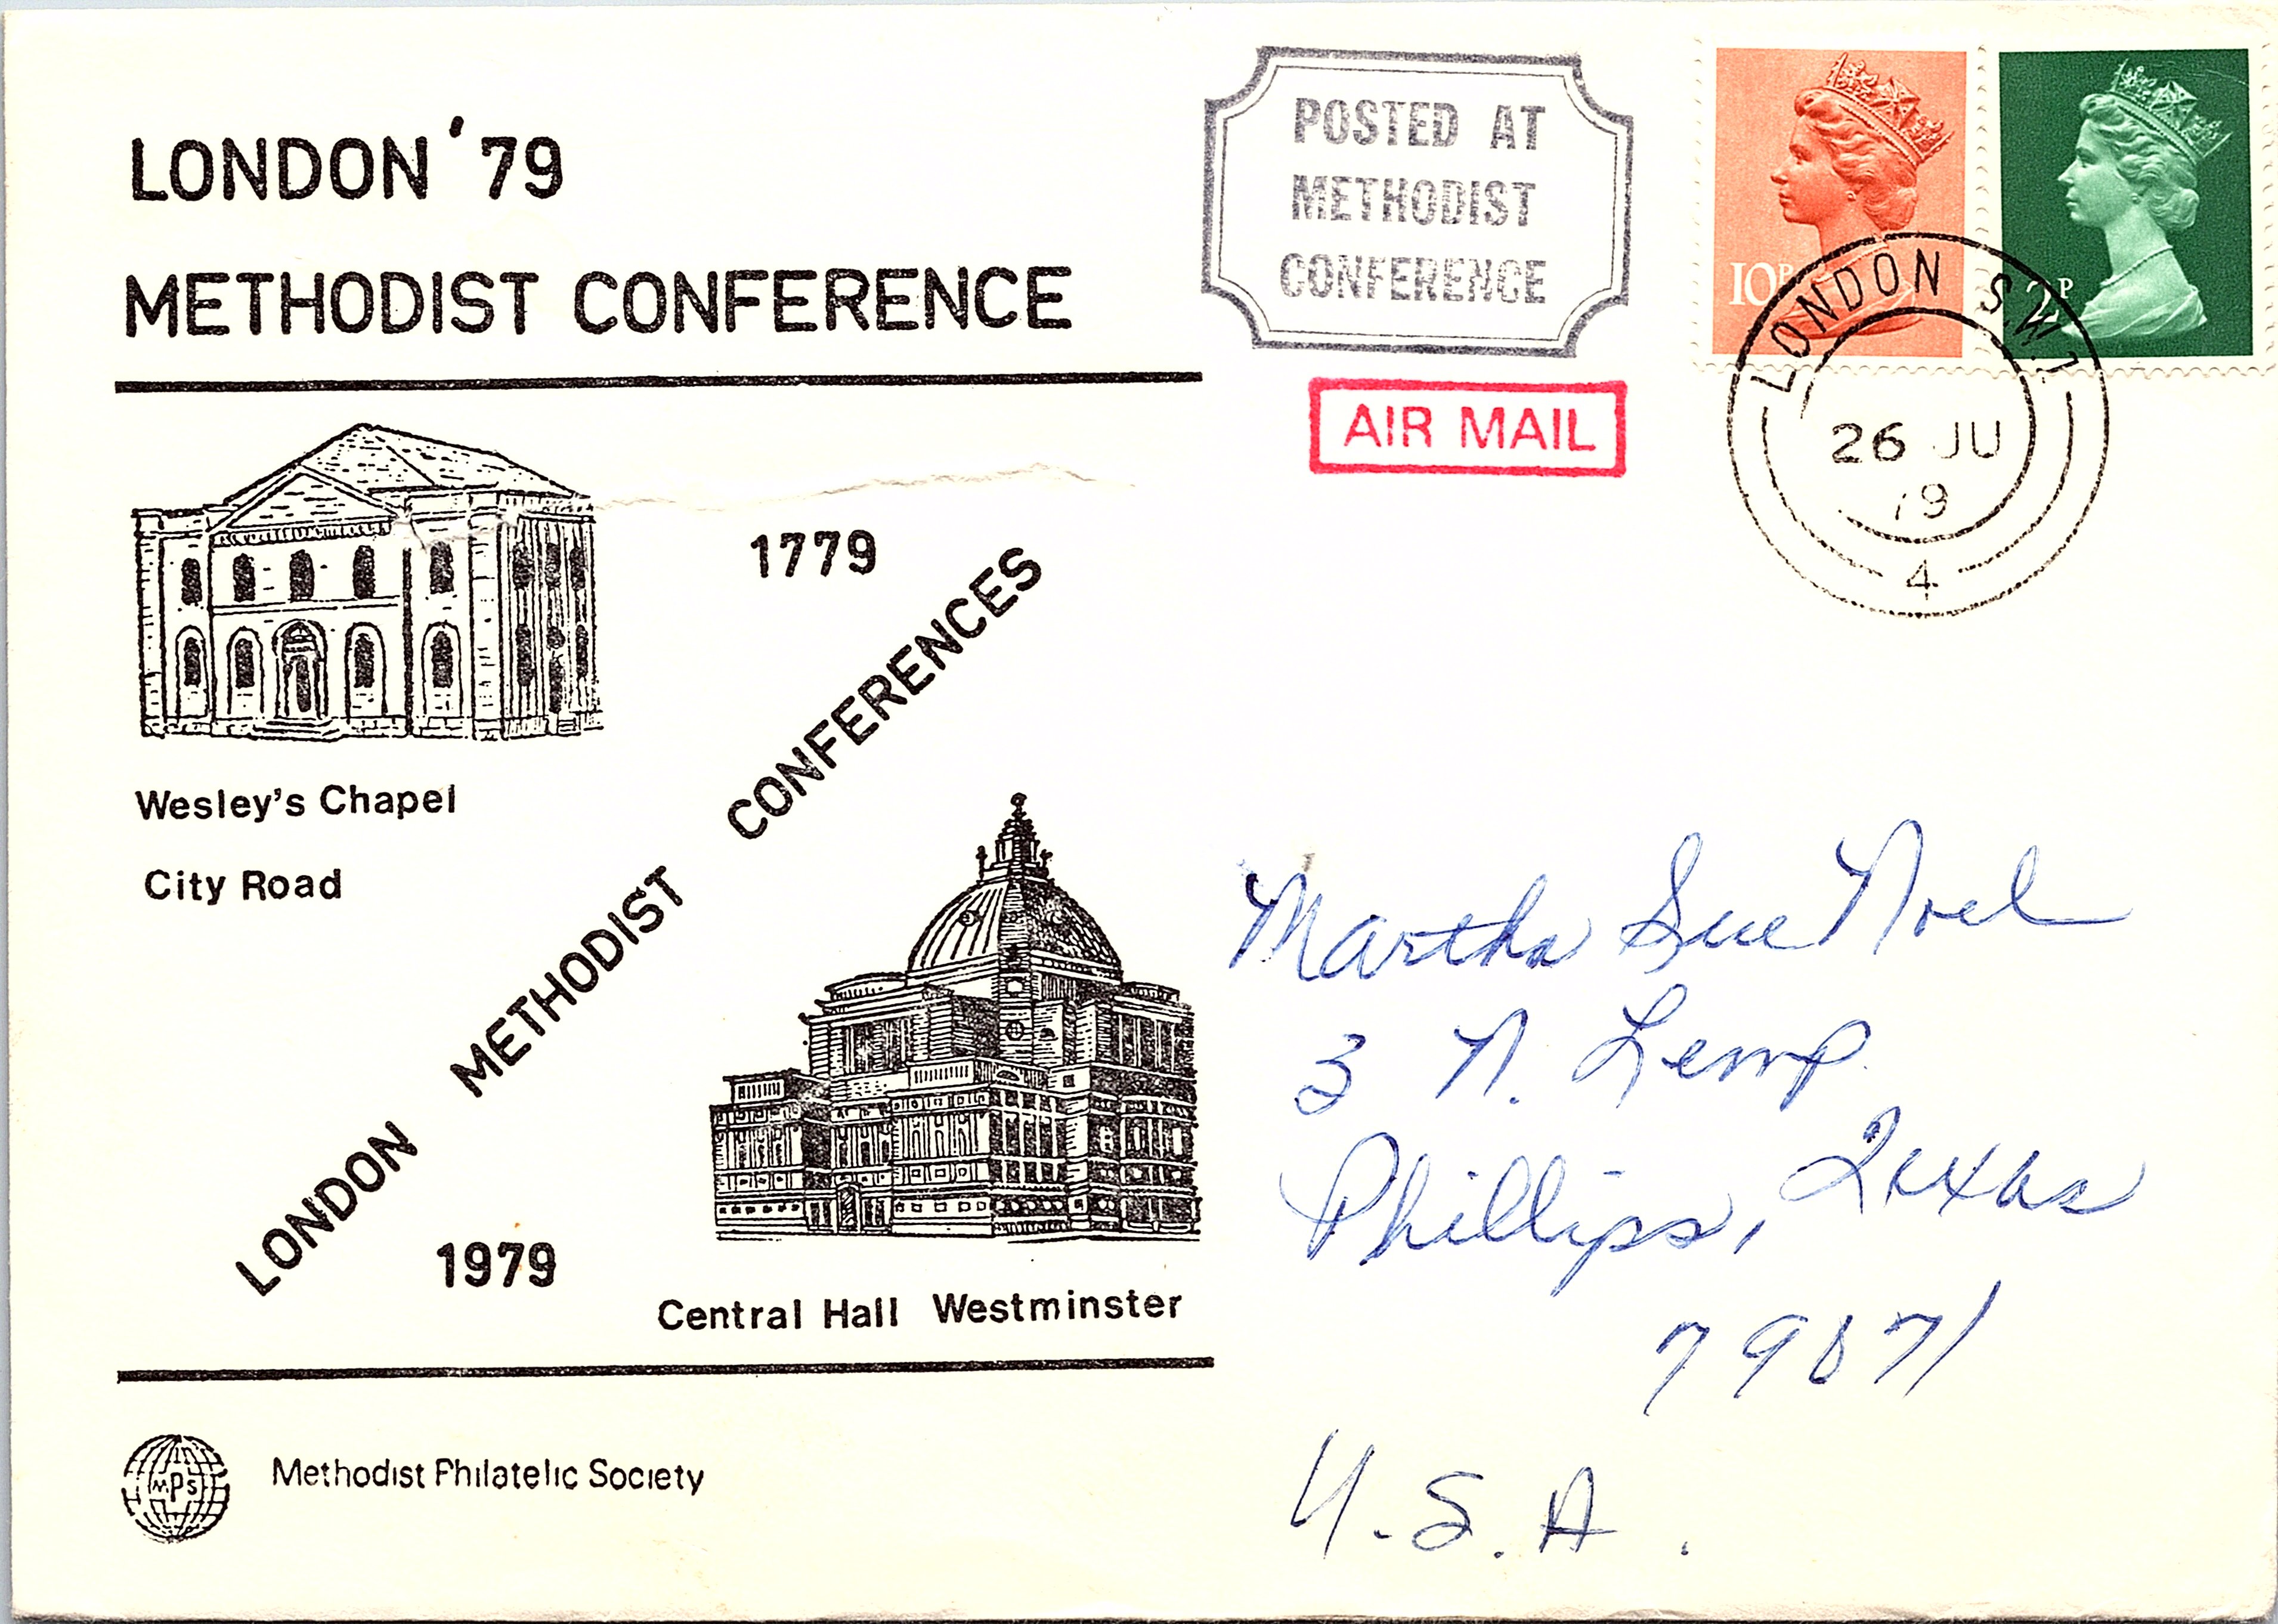 LONDON '79
METHODIST CONFERENCE
POSTED AT
METHODIST
CONFERENCE
AIR MAIL
10P
2P
LONDON S.W.1
26 JU
79
4
1779
LONDON METHODIST CONFERENCES
1979
Wesley's Chapel
City Road
Central Hall Westminster
MPS
Methodist Philatelic Society
Martha Sue Noel
3 N. Lemp
Phillips, Texas
79071
U.S.A.